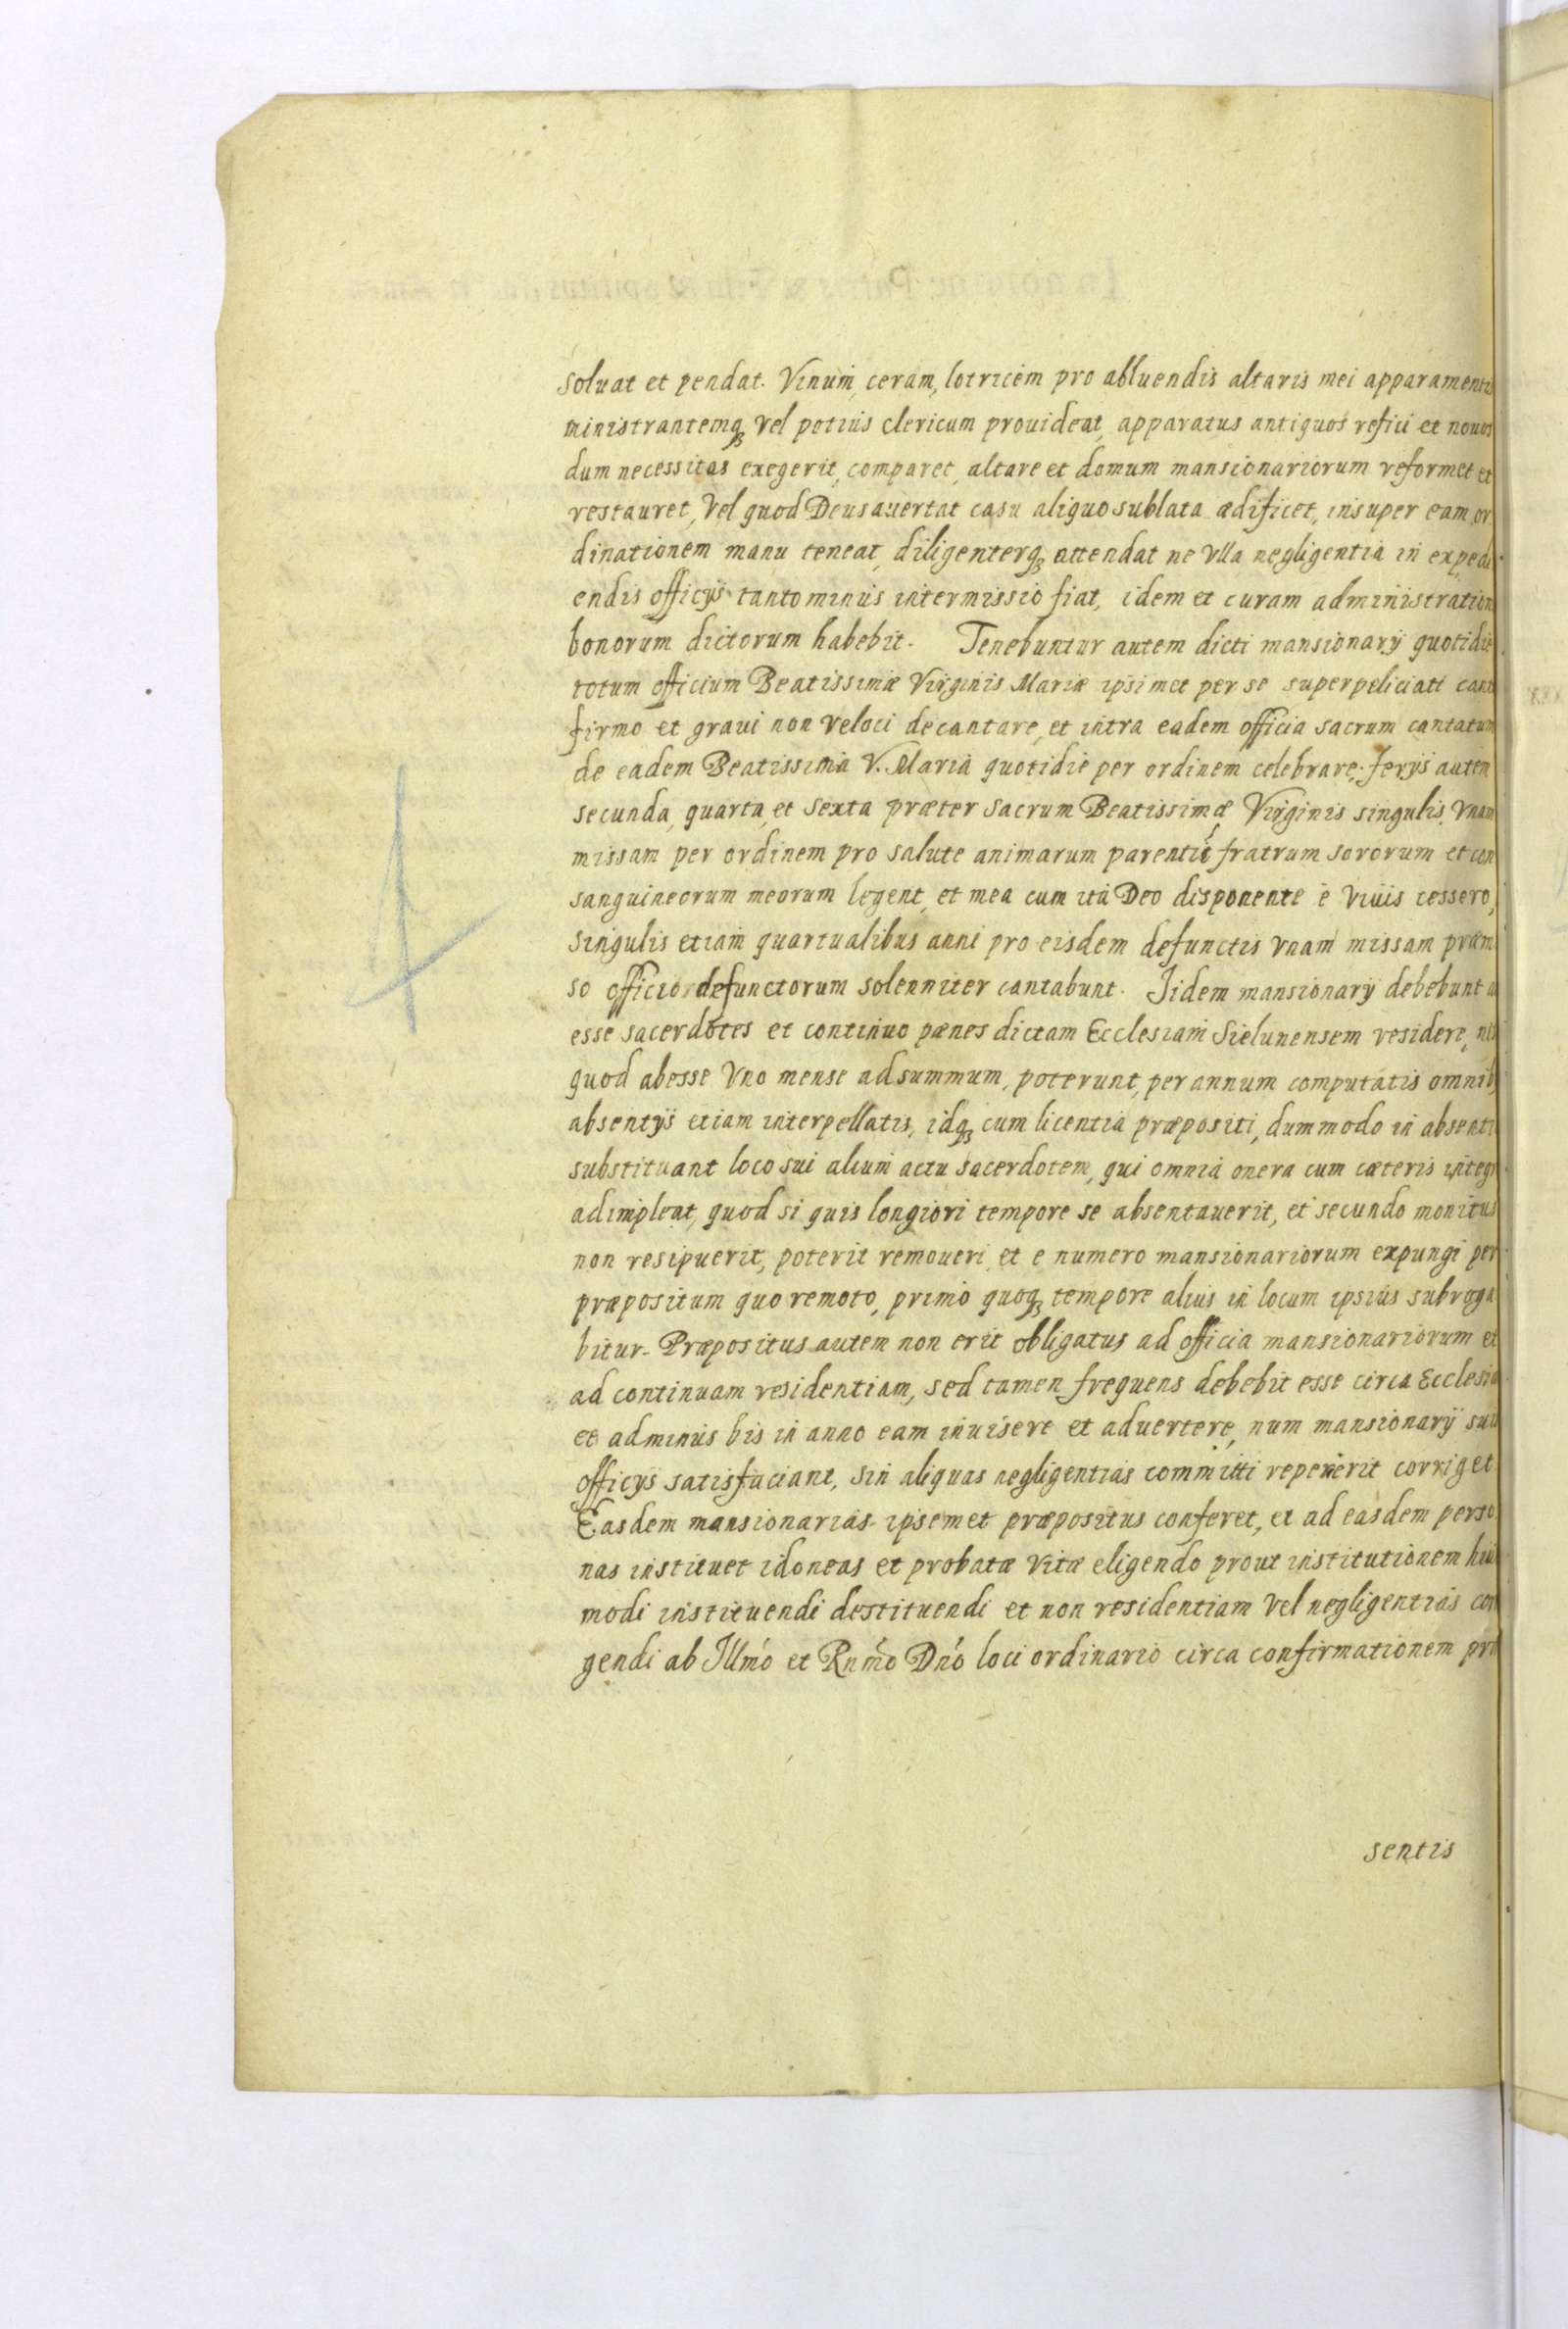 soluat et pendat. Vinum, ceram, lotricem pro abluendis altaris mei apparamenti
ministrantemqꝫ vel potiùs clericum prouideat, apparatus antiquos refici et nouos
dum necessitas exegerit, comparet, altare et domum mansionariorum reformet et
restauret, Vel quod Deus auertat casu aliquo sublata ædificet, insuper eam or
dinationem manu teneat, diligenterqꝫ attendat ne Vlla negligentia in expedi
endis officijs tanto minùs intermissio fiat, idem et curam administration
bonorum dictorum habebit. Tenebuntur autem dicti mansionarij quotidie
totum officium Beatissimæ Virginis Mariæ ipsimet per se superpeliciati cant
firmo et graui non veloci decantare, et intra eadem officia sacrum cantatum
de eadem Beatissima V. Maria quotidie per ordinem celebrare. ferijs autem
secunda, quarta, et sexta præter sacrum Beatissimæ Virginis singulis, Vnam
missam per ordinem pro salute animarum parentũ fratrum sororum et con
sanguineorum meorum legent, et mea cum ità Deo disponente è viuis cessero,
singulis etiam quartualibus anni pro eisdem defunctis vnam missam præm
so officio defunctorum solenniter cantabunt. Iidem mansionarij debebunt a
esse sacerdotes et continuo pænes dictam Ecclesiam Sielunensem residere, ni
quod abesse Vno mense ad summum, poterunt, per annum computatis omnib
absentijs etiam interpellatis, idqꝫ cum licentia præpositi, dummodo in absenti
substituant loco sui alium actu sacerdotem, qui omnia onera cum cæteris integr
adimpleat, quod si quis longiori tempore se absentauerit, et secundo monitus
non resipuerit, poterit remoueri, et e numero mansionariorum expungi per
præpositum quo remoto, primo quoqꝫ tempore alius in locum ipsius subroga
bitur. Præpositus autem non erit obligatus ad officia mansionariorum et
ad continuam residentiam, sed tamen frequens debebit esse circa Ecclesia
et adminùs bis in anno eam inuisere et aduertere, num mansionarij sui
officijs satisfaciant, sin aliquas negligentias committi repererit corriget
Easdem mansionarias ipsemet præpositus conferet, et ad easdem perso
nas instituet idoneas et probatæ vitæ eligendo prout institutionem hui
modi instituendi destituendi et non residentiam vel negligentias corr
gendi ab Illmo et Rnmo Dno loci ordinario circa confirmationem præ
sentis